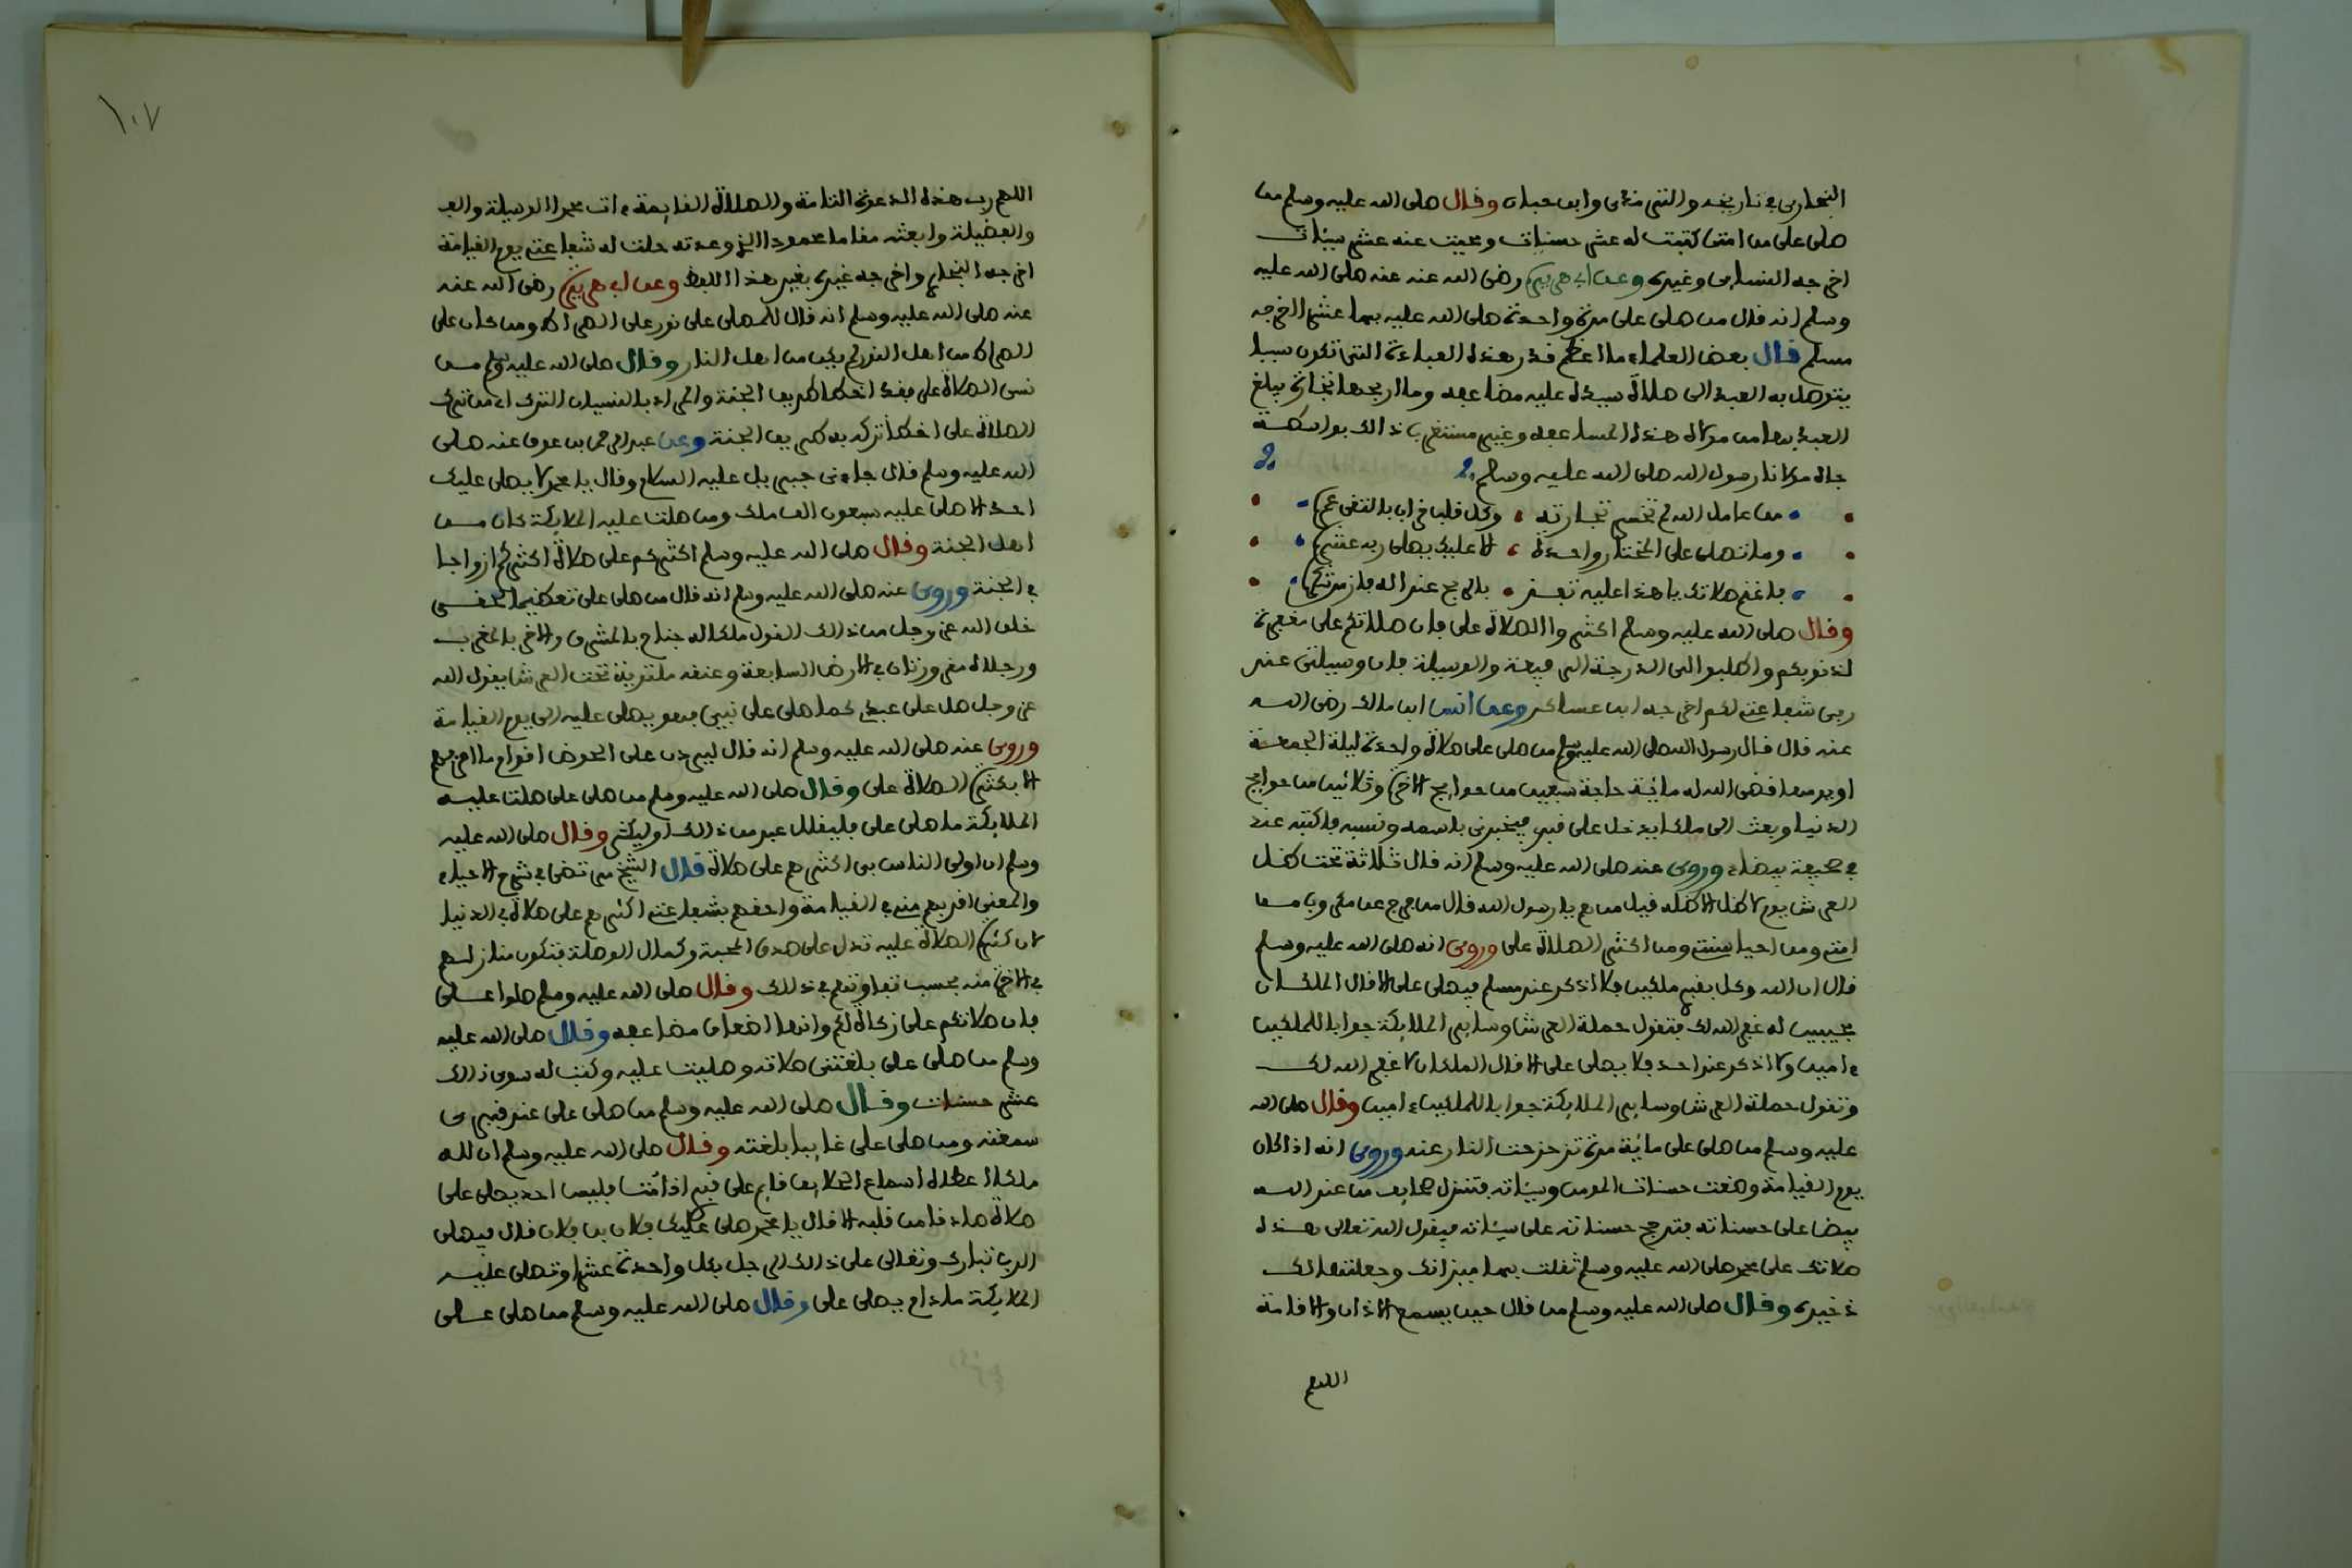 البخاري في تاريخه والترمذي وابن حبان وقال صلى الله عليه وسلم من
صلى علي من امتي كتبت له عشر حسنات ومحيت عنه عشر سيئات
اخرجه النسائي وغيره وعن ابي هريرة رضي الله عنه عنه صلى الله عليه
وسلم انه قال من صلى علي مرة واحدة صلى الله عليه بها عشرا اخرجه
مسلم قال بعض العلماء ما اعظم قدر هذه العبادة التي تكون سببا
يتوصل به العبد الى صلاة سيده عليه مضاعفة وما اربحها تجارة يبلغ
العبد بها من مولاه هذه المضاعفة وغير مستغرب ذالك بواسطة
جاه مولانا رسول الله صلى الله عليه وسلم
من عامل الله لم تخسر تجارته وكل قلب خراب بالتقى عمرا
وما تصلي على المختار واحدة الا عليك يصلي ربه عشرا
فاغنم صلاتك يا هذا عليه تفز
وقال صلى الله عليه وسلم اكثروا الصلاة علي فان صلاتكم علي مغفرة
لذنوبكم واطلبوا الي الدرجة الرفيعة والوسيلة فان وسيلتي عند
ربي شفاعتي لكم اخرجه ابن عساكر وعن انس ابن مالك رضي الله
عنه قال قال رسول الله صلى الله عليه وسلم من صلى علي صلاة واحدة ليلة الجمعة
او يومها قضى الله له مائة حاجة سبعين من حوايج الاخرة وثلاثين من حوايج
الدنيا وبعث الي ملكا يدخل على قبري فيخبرني باسمه ونسبه فاكتبه عندي
في صحيفة بيضاء وروي عنه صلى الله عليه وسلم انه قال ثلاثة تحت ظل
العرش يوم لا ظل الا ظله قيل من هم يا رسول الله قال من فرج عن مكروب من
امتي ومن احيا سنتي ومن اكثر الصلاة علي وروي انه صلى الله عليه وسلم
قال ان الله وكل بقبري ملكين فلا اذكر عند مسلم فيصلي علي الا قال الملكان
مجيبين له غفر الله لك فتقول حملة العرش وساير الملايكة جوابا للملكين
ءامين ولا اذكر عند احد فلا يصلي علي الا قال الملكان لا غفر الله لك
وتقول حملة العرش وساير الملايكة جوابا للملكين ءامين وقال صلى الله
عليه وسلم من صلى علي مائة مرة تزحزحت النار عنه وروي انه اذا كان
يوم القيامة وضعت حسنات المومن وسيئاته فتنزل صحايف من عند الله
بيضا على حسناته فترجح حسناته على سيئاته فيقول الله تعالى هذه
صلاتك على محمد صلى الله عليه وسلم ثقلت بها ميزانك وجعلتها لك
ذخيرة وقال صلى الله عليه وسلم من قال حين يسمع الاذان والاقامة
اللهم
١٠٧
اللهم رب هذه الدعوة التامة والصلاة القايمة ءات محمدا الوسيلة والف
والفضيلة وابعثه مقاما محمودا الذي وعدته حلت له شفاعتي يوم القيامة
اخرجه البخاري واخرجه غيره بغير هذا اللفظ وعن ابي هريرة رضي الله عنه
عنه صلى الله عليه وسلم انه قال للمصلي علي نور على الصراط ومن كان على
الصراط من اهل النور لم يكن من اهل النار وقال صلى الله عليه وسلم من
نسي الصلاة علي فقد اخطا طريق الجنة والمراد بالنسيان الترك اي من ترك
الصلاة علي اخطا تركه به طريق الجنة وعن عبد الرحمن بن عوف عنه صلى
الله عليه وسلم قال جاءني جبريل عليه السلام وقال يا محمد لا يصلي عليك
احد الا صلى عليه سبعون الف ملك ومن صلت عليه الملايكة كان من
اهل الجنة وقال صلى الله عليه وسلم اكثركم علي صلاة اكثركم ازواجا
في الجنة وروي عنه صلى الله عليه وسلم انه قال من صلى علي تعظيما لحقي
خلق الله عز وجل من ذالك القول ملكا له جناح بالمشرق والاخر بالمغرب
ورجلاه مغروزتان في الارض السابعة وعنقه ملتوية تحت العرش يقول الله
عز وجل صل على عبدي كما صلى على نبيي فهو يصلي عليه الى يوم القيامة
وروي عنه صلى الله عليه وسلم انه قال ليردن علي الحوض اقوام ما اعرفهم
الا بكثرة الصلاة علي وقال صلى الله عليه وسلم من صلى علي صلت عليه
الملايكة ما صلى علي فليقلل عبد من ذالك او ليكثر وقال صلى الله عليه
وسلم ان اولى الناس بي اكثرهم علي صلاة قال الشيخ مرتضى في شرح الاحياء
والمعنى اقربهم مني في القيامة واحقهم بشفاعتي اكثرهم علي صلاة في الدنيا
لان كثرة الصلاة عليه تدل على صدق المحبة وكمال الوصلة فتكون منازلهم
في الاخرة منه بحسب تفاوتهم في ذالك وقال صلى الله عليه وسلم صلوا علي
فان صلاتكم علي زكاة لكم وانها اضعاف مضاعفة وقال صلى الله عليه
وسلم من صلى علي بلغتني صلاته وصليت عليه وكتب له سوى ذالك
عشر حسنات وقال صلى الله عليه وسلم من صلى علي عند قبري
سمعته ومن صلى علي غايبا بلغته وقال صلى الله عليه وسلم ان لله
ملكا اعطاه اسماع الخلايق قايم على قبري اذا مت فليس احد يصلي علي
صلاة صادقا من قلبه الا قال يا محمد صلى عليك فلان بن فلان قال فيصلي
الرب تبارك وتعالى على ذالك الرجل بكل واحدة عشرا وتصلي عليه
الملايكة مادام يصلي علي وقال صلى الله عليه وسلم من صلى علي